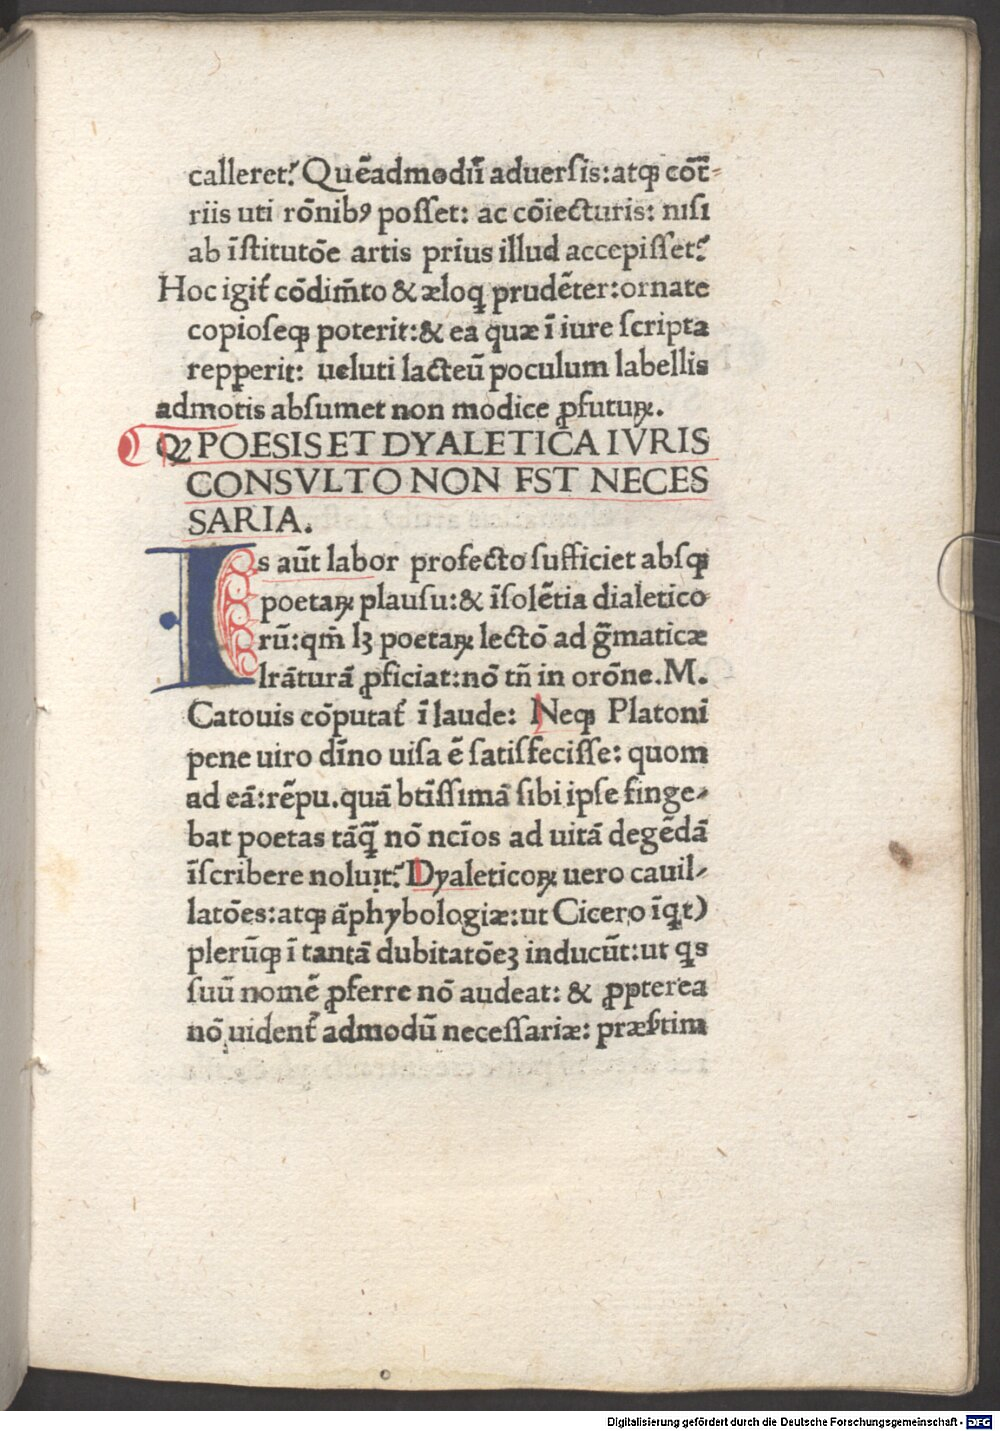 calleret? Quēadmodū aduersis:atqꝫ cōt̄-
riis uti rōnibꝰ posset: ac cōiecturis: nisi
ab īstitutōe artis prius illud accepisset?
Hoc igit̄ cōdim̄to & æloqꝫ prudēter:ornate
copioseqꝫ poterit:& ea quæ ī iure scripta
repꝑerit: ueluti lacteū poculum labellis
admotis absumet non modice ꝓfuturꝝ.
Qꝫ POESIS ET DYALETICA IVRIS
CONSVLTO NON FST NECES
SARIA.
Is aūt labor profecto sufficiet absqꝫ
poetaꝝ plausu:& īsolētia dialetico
rū:qm̄ lꝫ poetaꝝ lectō ad gm̄aticæ
lrāturā ꝓficiat:nō tn̄ in orōne.M.
Catouis cōputat̄ ī laude: Neqꝫ Platoni
pene uiro dīno uisa ē satisfecisse: quom
ad eā:rēpu.quā btīssimā sibi ipse finge-
bat poetas tāqꝫ̄ nō ncīos ad uitā degēdā
īscribere noluit? Dyaleticoꝝ uero cauil-
latōes:atqꝫ āphybologiæ:ut Cicero īqt)
plerūqꝫ ī tantā dubitatōeꝫ inducūt:ut qs
suū nomē ꝓferre nō audeat: & ꝓpterea
nō uident̄ admodū necessariæ: præstim
Digitalisierung gefördert durch die Deutsche Forschungsgemeinschaft - DFG